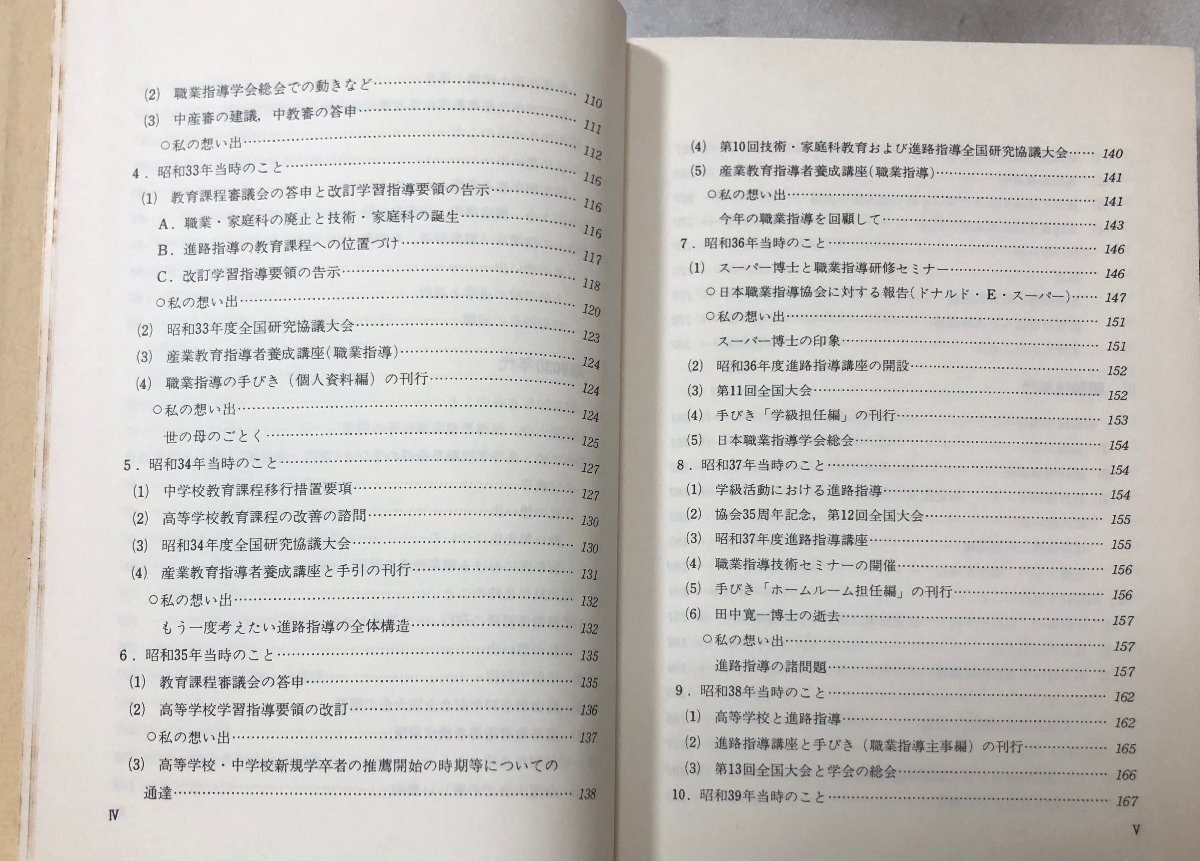 (2) 職業指導学会総会での動きなど 110
(3) 中産審の建議，中教審の答申 111
○私の想い出 112
4．昭和33年当時のこと 116
(1) 教育課程審議会の答申と改訂学習指導要領の告示 116
A．職業・家庭科の廃止と技術・家庭科の誕生 116
B．進路指導の教育課程への位置づけ 117
C．改訂学習指導要領の告示 118
○私の想い出 120
(2) 昭和33年度全国研究協議大会 123
(3) 産業教育指導者養成講座(職業指導) 124
(4) 職業指導の手びき（個人資料編）の刊行 124
○私の想い出 124
世の母のごとく 125
5．昭和34年当時のこと 127
(1) 中学校教育課程移行措置要項 127
(2) 高等学校教育課程の改善の諮問 130
(3) 昭和34年度全国研究協議大会 130
(4) 産業教育指導者養成講座と手引の刊行 131
○私の想い出 132
もう一度考えたい進路指導の全体構造 132
6．昭和35年当時のこと 135
(1) 教育課程審議会の答申 135
(2) 高等学校学習指導要領の改訂 136
○私の想い出 137
(3) 高等学校・中学校新規学卒者の推薦開始の時期等についての
通達 138
Ⅳ
(4) 第10回技術・家庭科教育および進路指導全国研究協議大会 140
(5) 産業教育指導者養成講座(職業指導) 141
○私の想い出 141
今年の職業指導を回顧して 143
7．昭和36年当時のこと 146
(1) スーパー博士と職業指導研修セミナー 146
○日本職業指導協会に対する報告(ドナルド・E・スーパー) 147
○私の想い出 151
スーパー博士の印象 151
(2) 昭和36年度進路指導講座の開設 152
(3) 第11回全国大会 152
(4) 手びき「学級担任編」の刊行 153
(5) 日本職業指導学会総会 154
8．昭和37年当時のこと 154
(1) 学級活動における進路指導 154
(2) 協会35周年記念，第12回全国大会 155
(3) 昭和37年度進路指導講座 155
(4) 職業指導技術セミナーの開催 156
(5) 手びき「ホームルーム担任編」の刊行 156
(6) 田中寛一博士の逝去 157
○私の想い出 157
進路指導の諸問題 157
9．昭和38年当時のこと 162
(1) 高等学校と進路指導 162
(2) 進路指導講座と手びき（職業指導主事編）の刊行 165
(3) 第13回全国大会と学会の総会 166
10．昭和39年当時のこと 167
Ⅴ